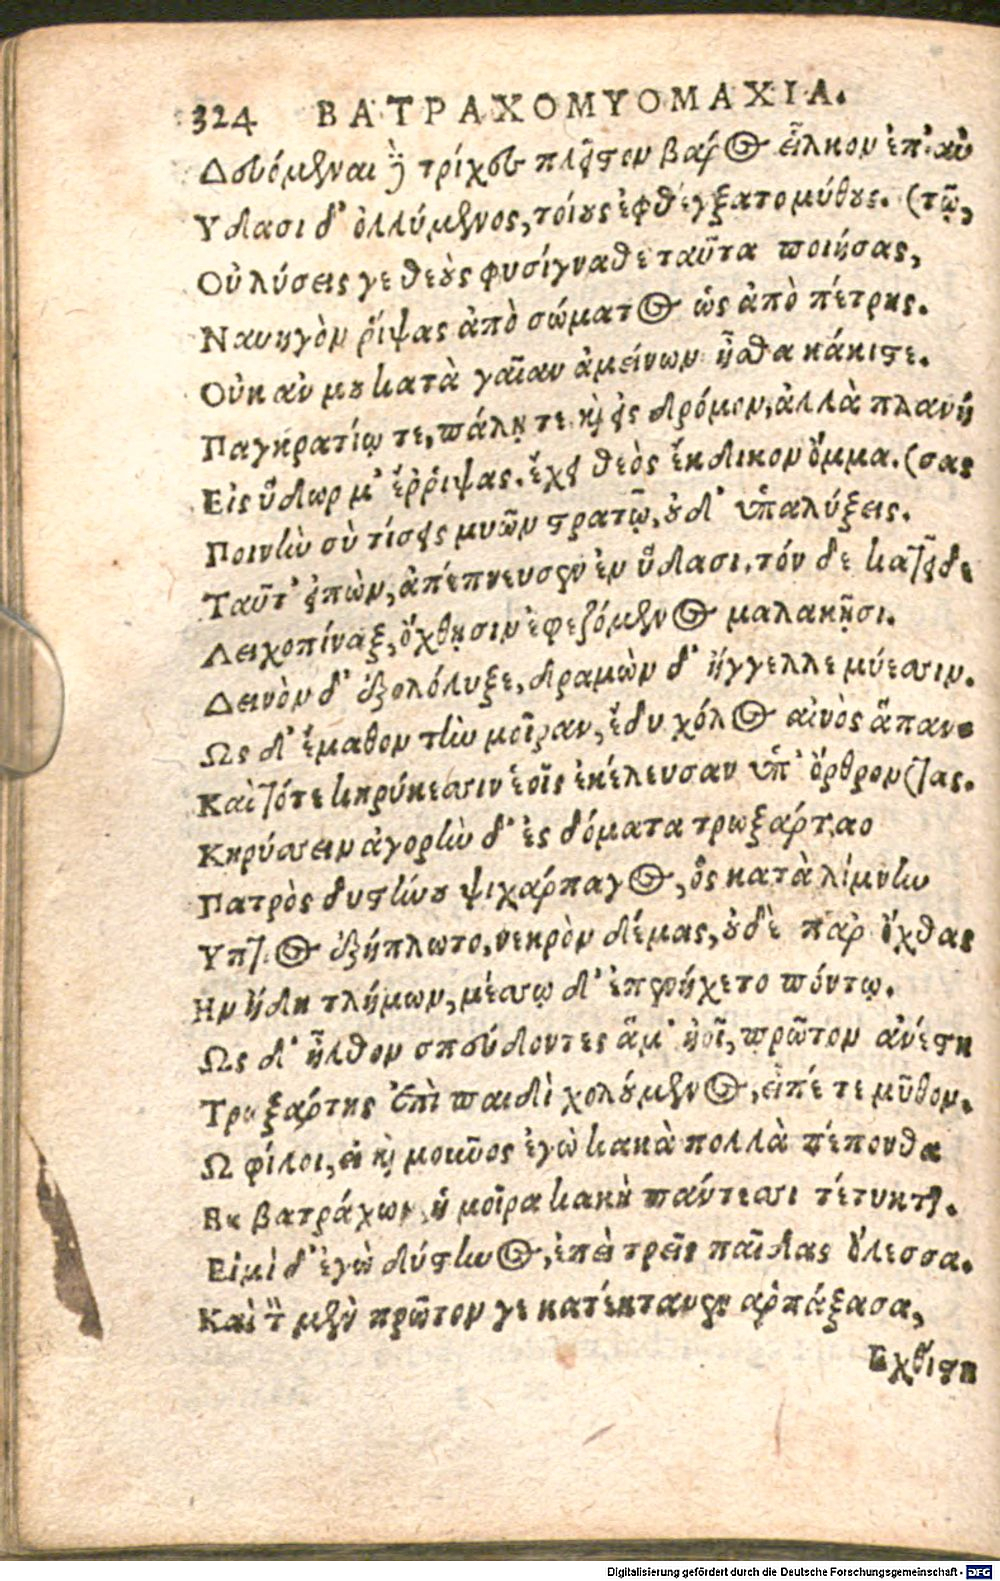 324 ΒΑΤΡΑΧΟΜΥΟΜΑΧΙΑ.
Δευόμεναι δὲ τρίχες πλεῖστον βάρος εἷλκον ἐπ' αὐ
Υδασι δ' ὀλλύμενος, τοίους ἐφθέγξατο μύθους. (τῷ,
Οὐ λύσεις γε θεοὺς φυσίγναθε ταῦτα ποιήσας,
Ναυηγὸν ῥίψας ἀπὸ σώματος ὡς ἀπὸ πέτρης.
Οὐκ αὐ μου κατὰ γαῖαν ἀμείνων ἦσθα κάκιστε.
Παγκρατίῳ τε, πάλῃ τε καὶ εἰς δρόμον, ἀλλὰ πλανή
Εἰς ὕδωρ μ' ἔῤῥιψας. ἔχει θεὸς ἔκδικον ὄμμα. (σας
Ποινὴν σὺ τίσεις μυῶν στρατῷ, οὐδ' ὑπαλύξεις.
Ταῦτ' εἰπὼν, ἀπέπνευσεν ἐν ὕδασι. τόν δε κατεῖδε
Λειχοπίναξ, ὄχθῃσιν ἐφεζόμενος μαλακῇσι.
Δεινὸν δ' ἐξολόλυξε, δραμὼν δ' ἤγγελλε μύεσσιν.
Ως δ' ἔμαθον τὴν μοῖραν, ἔδυ χόλος αἰνὸς ἅπαν-
Καὶ τότε κηρύκεσσιν ἑοῖς ἐκέλευσαν ὑπ' ὄρθρον (τας.
Κηρύσσειν ἀγορὴν δ' ἐς δόματα τρωξάρταο
Πατρὸς δυστήνου ψιχάρπαγος, ὃς κατὰ λίμνην
Υπτιος ἐξήπλωτο, νεκρὸν δέμας, οὐδὲ παρ ὄχθας
Ην ἤδη τλήμων, μέσσῳ δ' ἐπενήχετο πόντῳ.
Ως δ' ἦλθον σπεύδοντες ἅμ' ἠοῖ, πρῶτον ἀνέστη
Τρωξάρτης ἐπὶ παιδὶ χολούμενος, εἶπέ τε μῦθον.
Ω φίλοι, εἰ καὶ μοῦνος ἐγὼ κακὰ πολλὰ πέπονθα
Εκ βατράχων, ἡ μοῖρα κακὴ πάντεσσι τέτυκται.
Εἰμὶ δ' ἐγὼ δύστηνος, ἐπεὶ τρεῖς παῖδας ὄλεσσα.
Καὶ τὸν μὲν πρῶτον γε κατέκτανεν ἁρπάξασα,
Εχθίστη
Digitalisierung gefördert durch die Deutsche Forschungsgemeinschaft - DFG